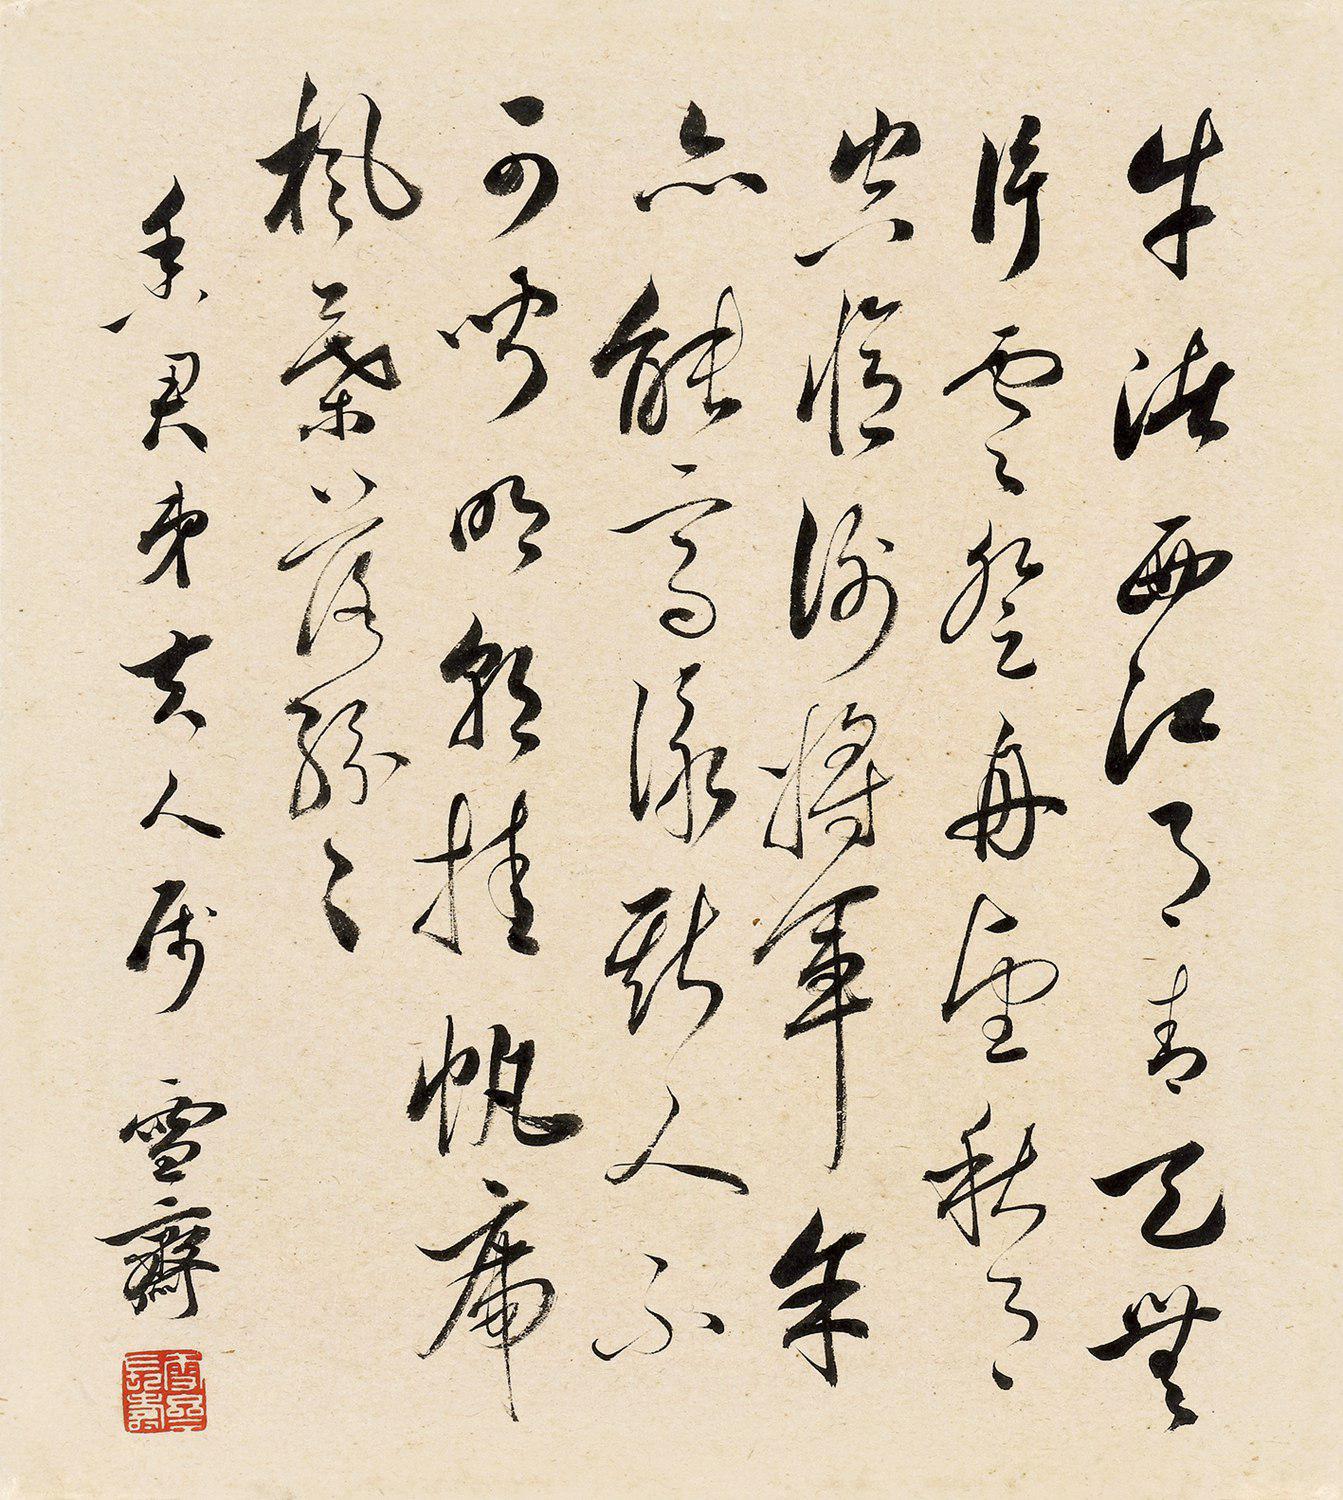 牛渚西江月青天無
片雲登舟望秋月
空憶謝將軍余
亦能高詠斯人不
可聞明朝挂帆席
楓葉落紛〻
君弟夫人属 雪齋